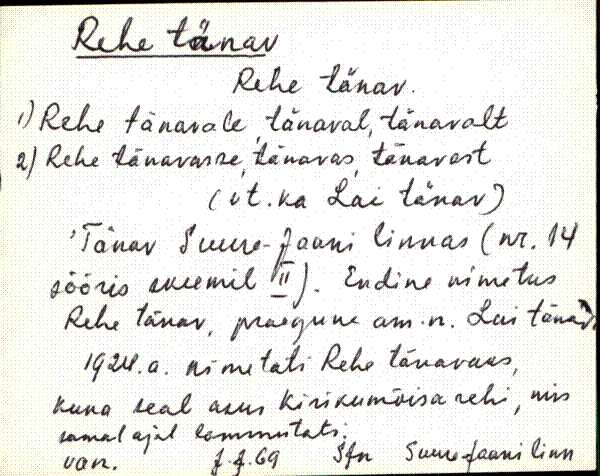 Rehe tänav
Rehe tänav.
1) Rehe tänavale, tänaval, tänavalt
2) Rehe tänavasse, tänavas, tänavast
(vt. ka Lai tänav)
'Tänav Suure-Jaani linnas (nr. 14
sööris skeemil II). Endine nimetus
Rehe tänav, praegune am. n. Lai tänav
1924. a. nimetati Rehe tänavaks,
kuna seal asus kirikumõisa rehi, mis
samal ajal lammutati.
van. J. J. 69 SJn Suure-Jaani linn